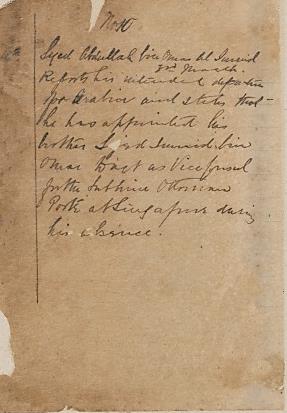 No 10
Syed Abdullah bin Omar Al Junied
3rd March.
Reports his intended departure
for Arabia and states that
he has appointed his
brother Syed Junied bin
Omar to act as Vice Consul
for the Sublime Ottoman
Porte at Singapore during
his absence.